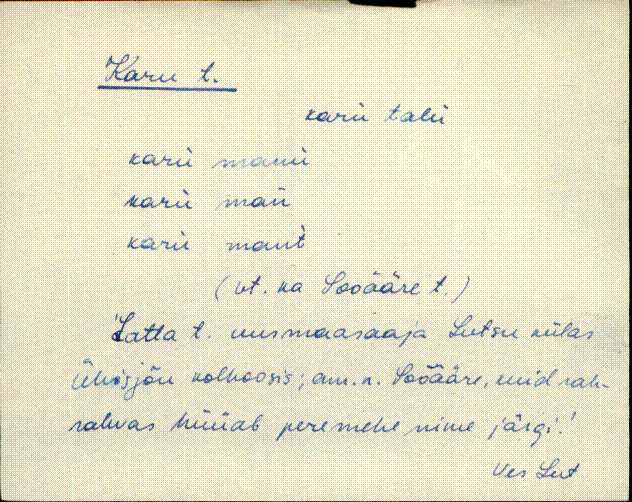 Karu t.
karu talu
karu
karu
karu
(vt. ka Sooääre t.)
Latta t. uusmaasaaja Lutsu külas
Ühisjõu kolhoosis; am. n. Sooääre, kuid rah-
rahvas hüüab peremehe nime järgi.!
Ves Lut